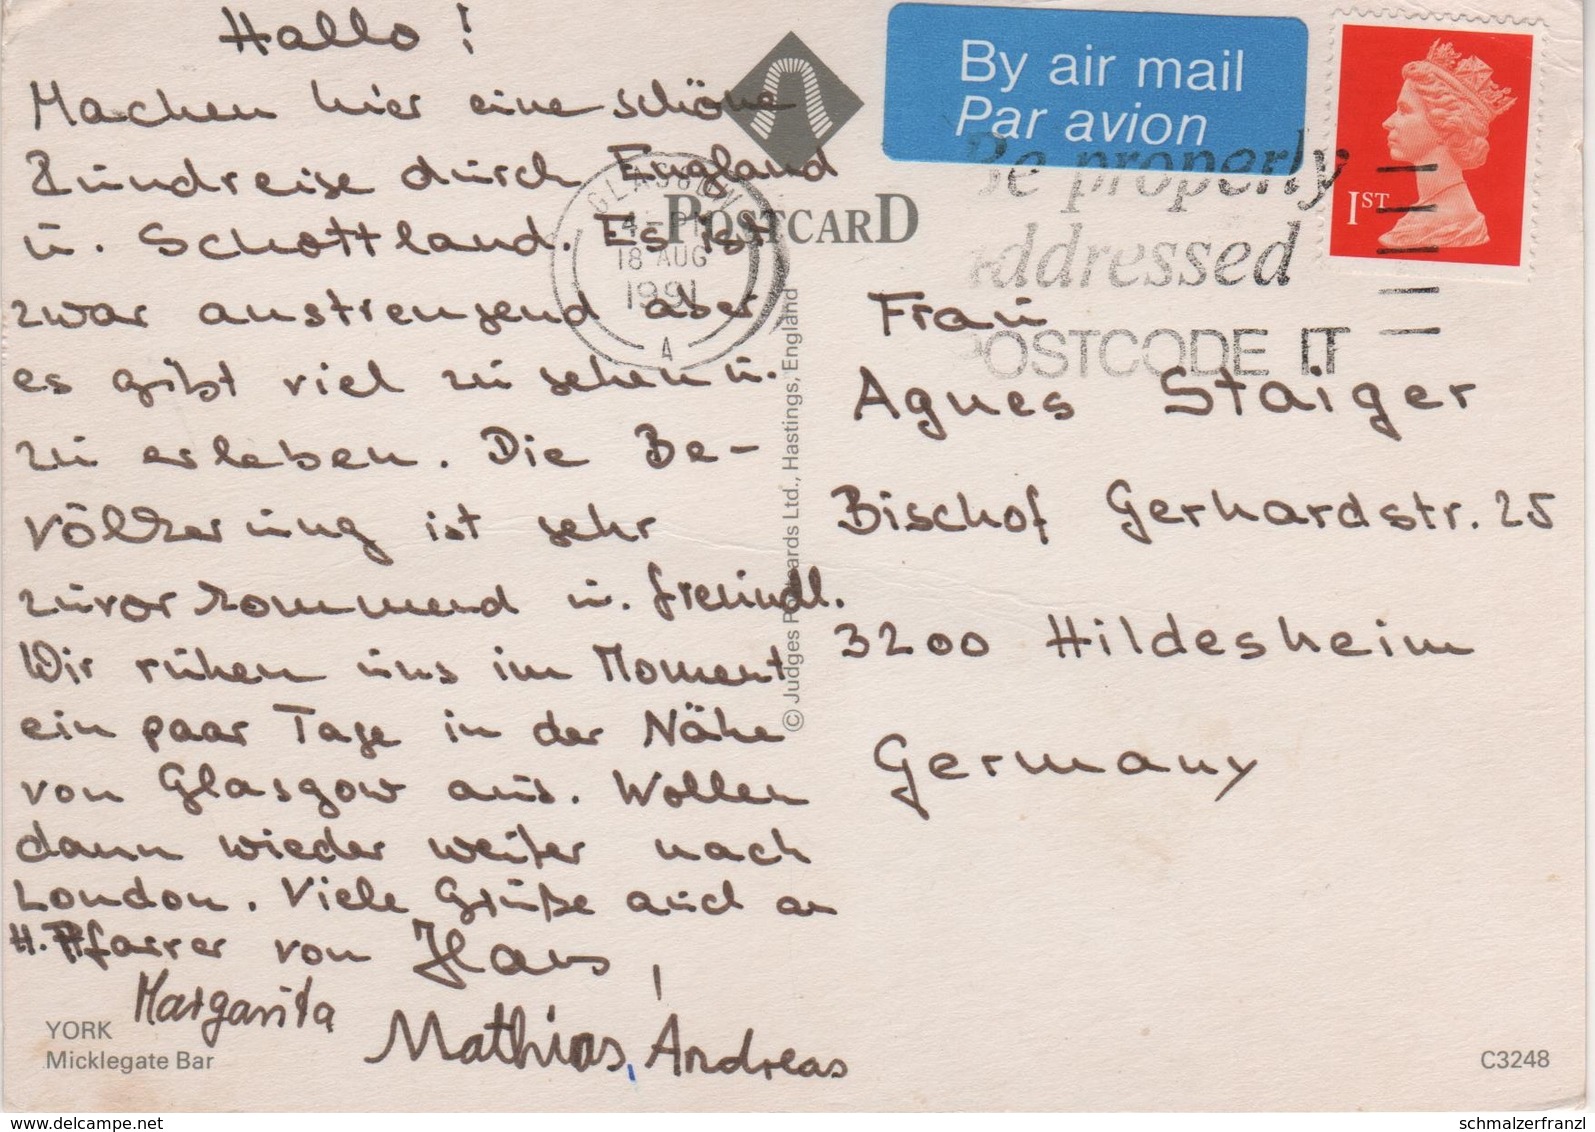 Hallo !
Machen hier eine schöne
Rundreise durch England
u. Schottland. Es ist
zwar anstrengend aber
es gibt viel zu sehen u.
zu erleben. Die Be-
völkerung ist sehr
zuvorkommend u. freundl.
Wir ruhen uns im Moment
ein paar Tage in der Nähe
von Glasgow aus. Wollen
dann wieder weiter nach
London. Viele Grüße auch an
H. Pfarrer von Hans,
Margarita
Mathias, Andreas
YORK
Micklegate Bar
POSTCARD
GLASGOW
4 - PM
18 AUG
1991
A
© Judges Postcards Ltd., Hastings, England
By air mail
Par avion
Be properly
addressed
POSTCODE IT
1ST
Frau
Agnes Staiger
Bischof Gerhardstr. 25
3200 Hildesheim
Germany
C3248
www.delcampe.net
schmalzerfranzl